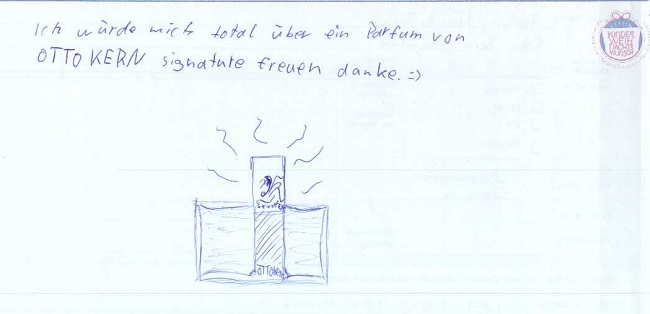 Ich würde mich total über ein Parfum von
OTTO KERN signature freuen danke. =)
KINDER
WEIH
NACHTS
WUNSCH
OTTO KERN